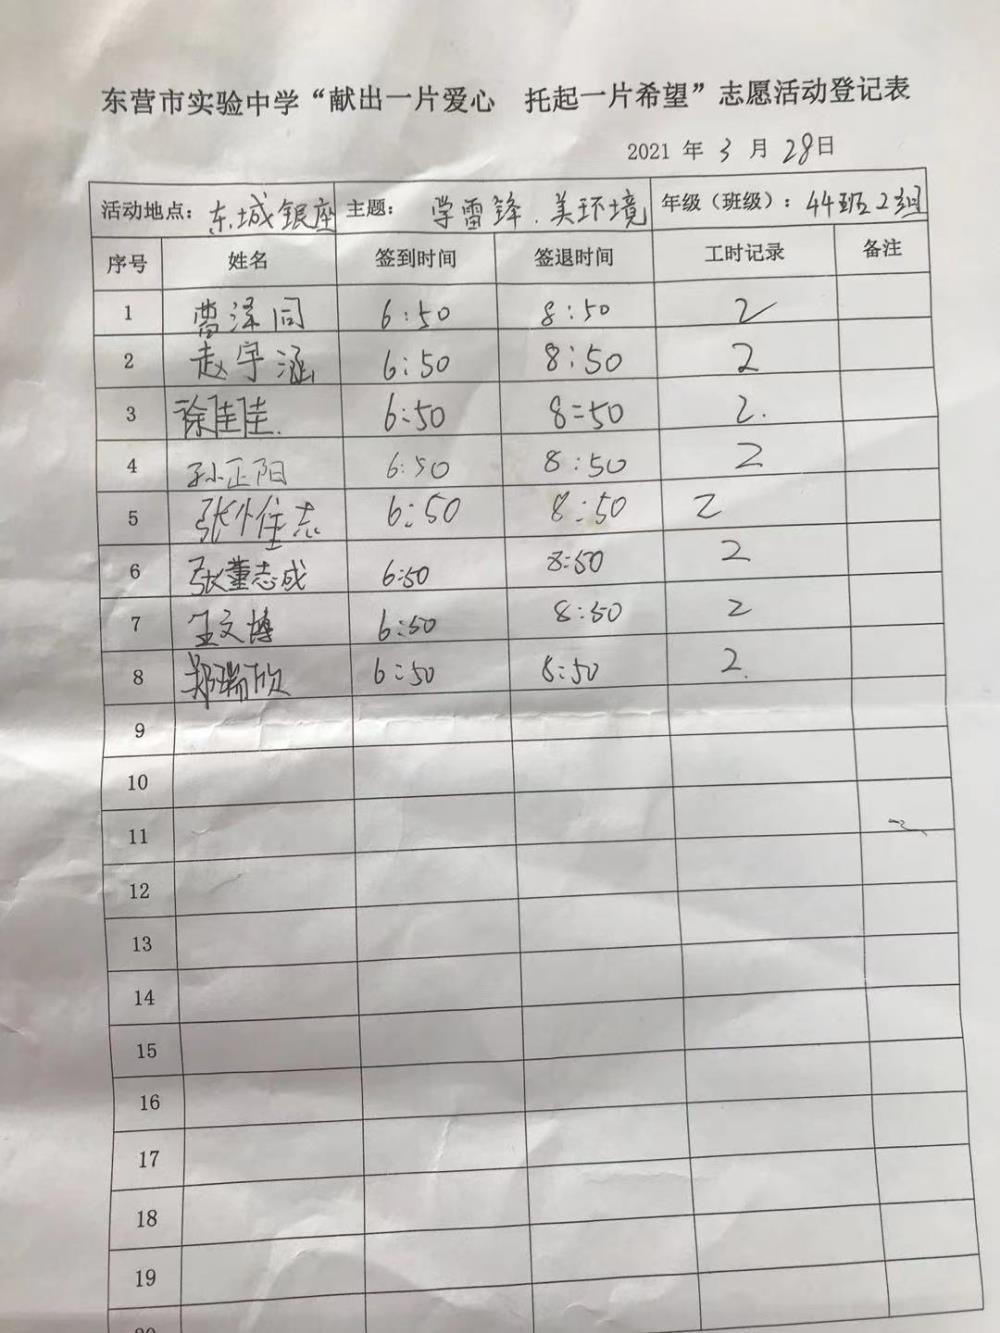 东营市实验中学“献出一片爱心 托起一片希望”志愿活动登记表
2021 年 3 月 28日
活动地点: 东城银座 主题: 学雷锋.美环境 年级（班级）: 44班2组
序号 姓名 签到时间 签退时间 工时记录 备注
1 曹泽同 6:50 8:50 2
2 赵宇涵 6:50 8:50 2
3 徐佳佳. 6:50 8:50 2.
4 孙正阳 6:50 8:50 2
5 6:50 8:50 2
6 张董志成 6:50 8:50 2
7 王文博 6:50 8:50 2
8 郑瑞欣 6:50 8:50 2.
9
10
11
12
13
14
15
16
17
18
19
20